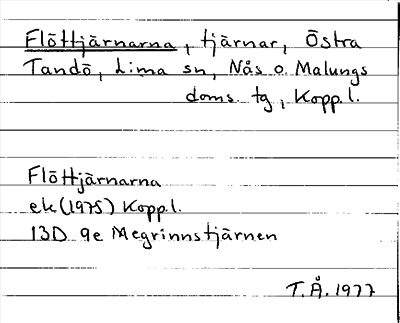 Flöttjärnarna, tjärnar, Östra
Tandö, Lima sn, Nås o Malungs
doms. tg, Kopp.l.
Flöttjärnarna
ek (1975) Kopp.l.
13D 9e Megrinnstjärnen
T.Å. 1977